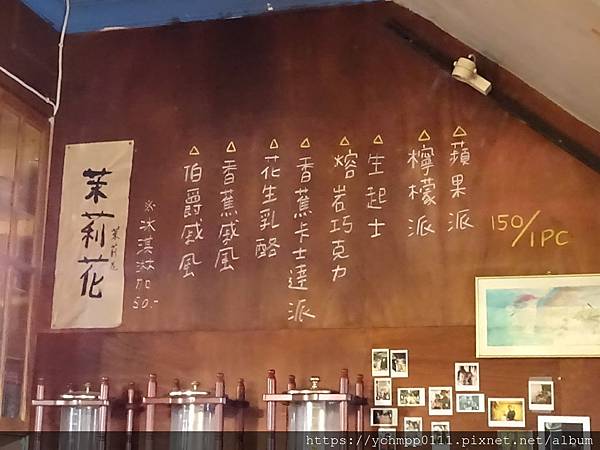 150/1PC
△蘋果派
△檸檬派
△生起士
△熔岩巧克力
△香蕉卡士達派
△花生乳酪
△香蕉戚風
△伯爵戚風
※冰淇淋加50.-
茉莉花
茉莉花
https://yohmpp0111.pixnet.net/album